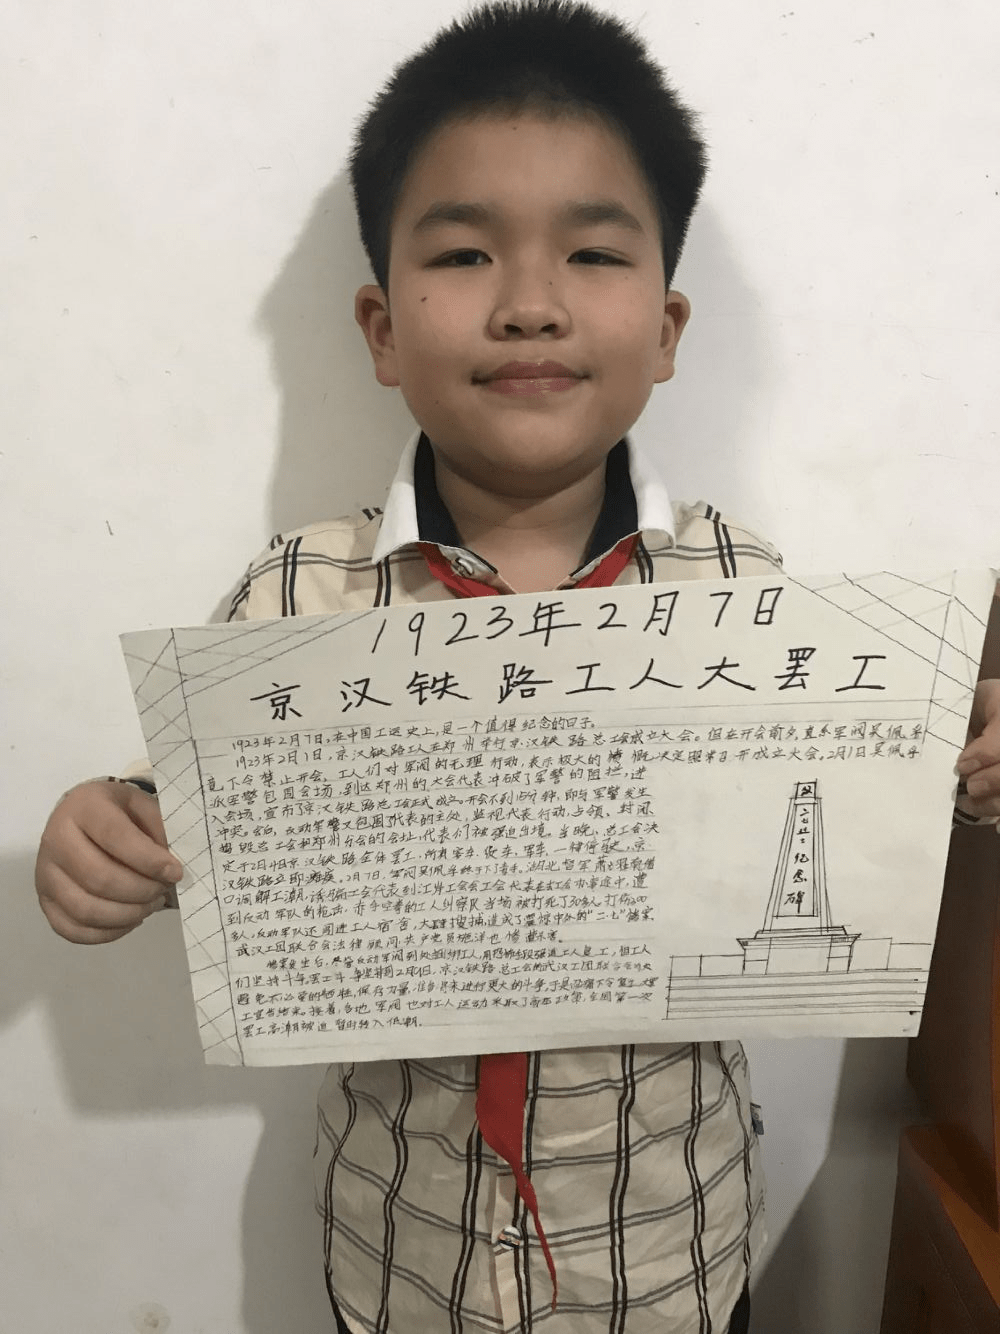 1923年2月7日
京汉铁路工人大罢工
1923年2月7日,在中国工运史上,是一个值得纪念的日子。
1923年2月1日,京汉铁路工人在郑州举行京汉铁路总工会成立大会。但在开会前夕,直系军阀吴佩孚
竟下令禁止开会,工人们对军阀的无理行动,表示极大的愤慨,决定照常召开成立大会。2月1日吴佩孚
派军警包围会场,到达郑州的大会代表冲破了军警的阻拦,进
入会场,宣布了京汉铁路总工会正式成立。开会不到,即与军警发生
冲突。会后,反动军警又包围了代表的主处,监视代表行动,占领、封闭
捣毁总工会和郑州分会的会址,代表们被强迫出境。当晚,总工会决
定于2月4日京汉铁路全体罢工,所有客车、货车、军车,一律停驶,京
汉铁路立即瘫痪。2月7日,军阀吴佩孚终于下毒手,湖北督军萧耀南借
口调解工潮,诱骗工会代表到江岸工会会工会代表在去工会办事途中,遭
到反动军队的枪击,赤手空拳的工人纠察队当场被打死了30多人,打伤200
多人,反动军队还闯进工人宿舍,大肆搜捕,造成了震惊中外的“二七”惨案,
武汉工团联合会法律顾问,共产党员施洋也惨遭杀害。
惨案发生后,尽管反动军阀到处捆绑工人,用恐怖手段强迫工人复工,但工人
们坚持斗争,罢工斗争坚持到2月9日,京汉铁路总工会的武汉工团联合会为
避免不必要的牺牲,保存力量,准备将来进行更大的斗争,于是忍痛下令复工,大罢
工宣告结束。接着,各地军阀也对工人运动采取了高压政策,全国第一次
罢工高潮被迫暂时转入低潮。
二七烈士纪念碑